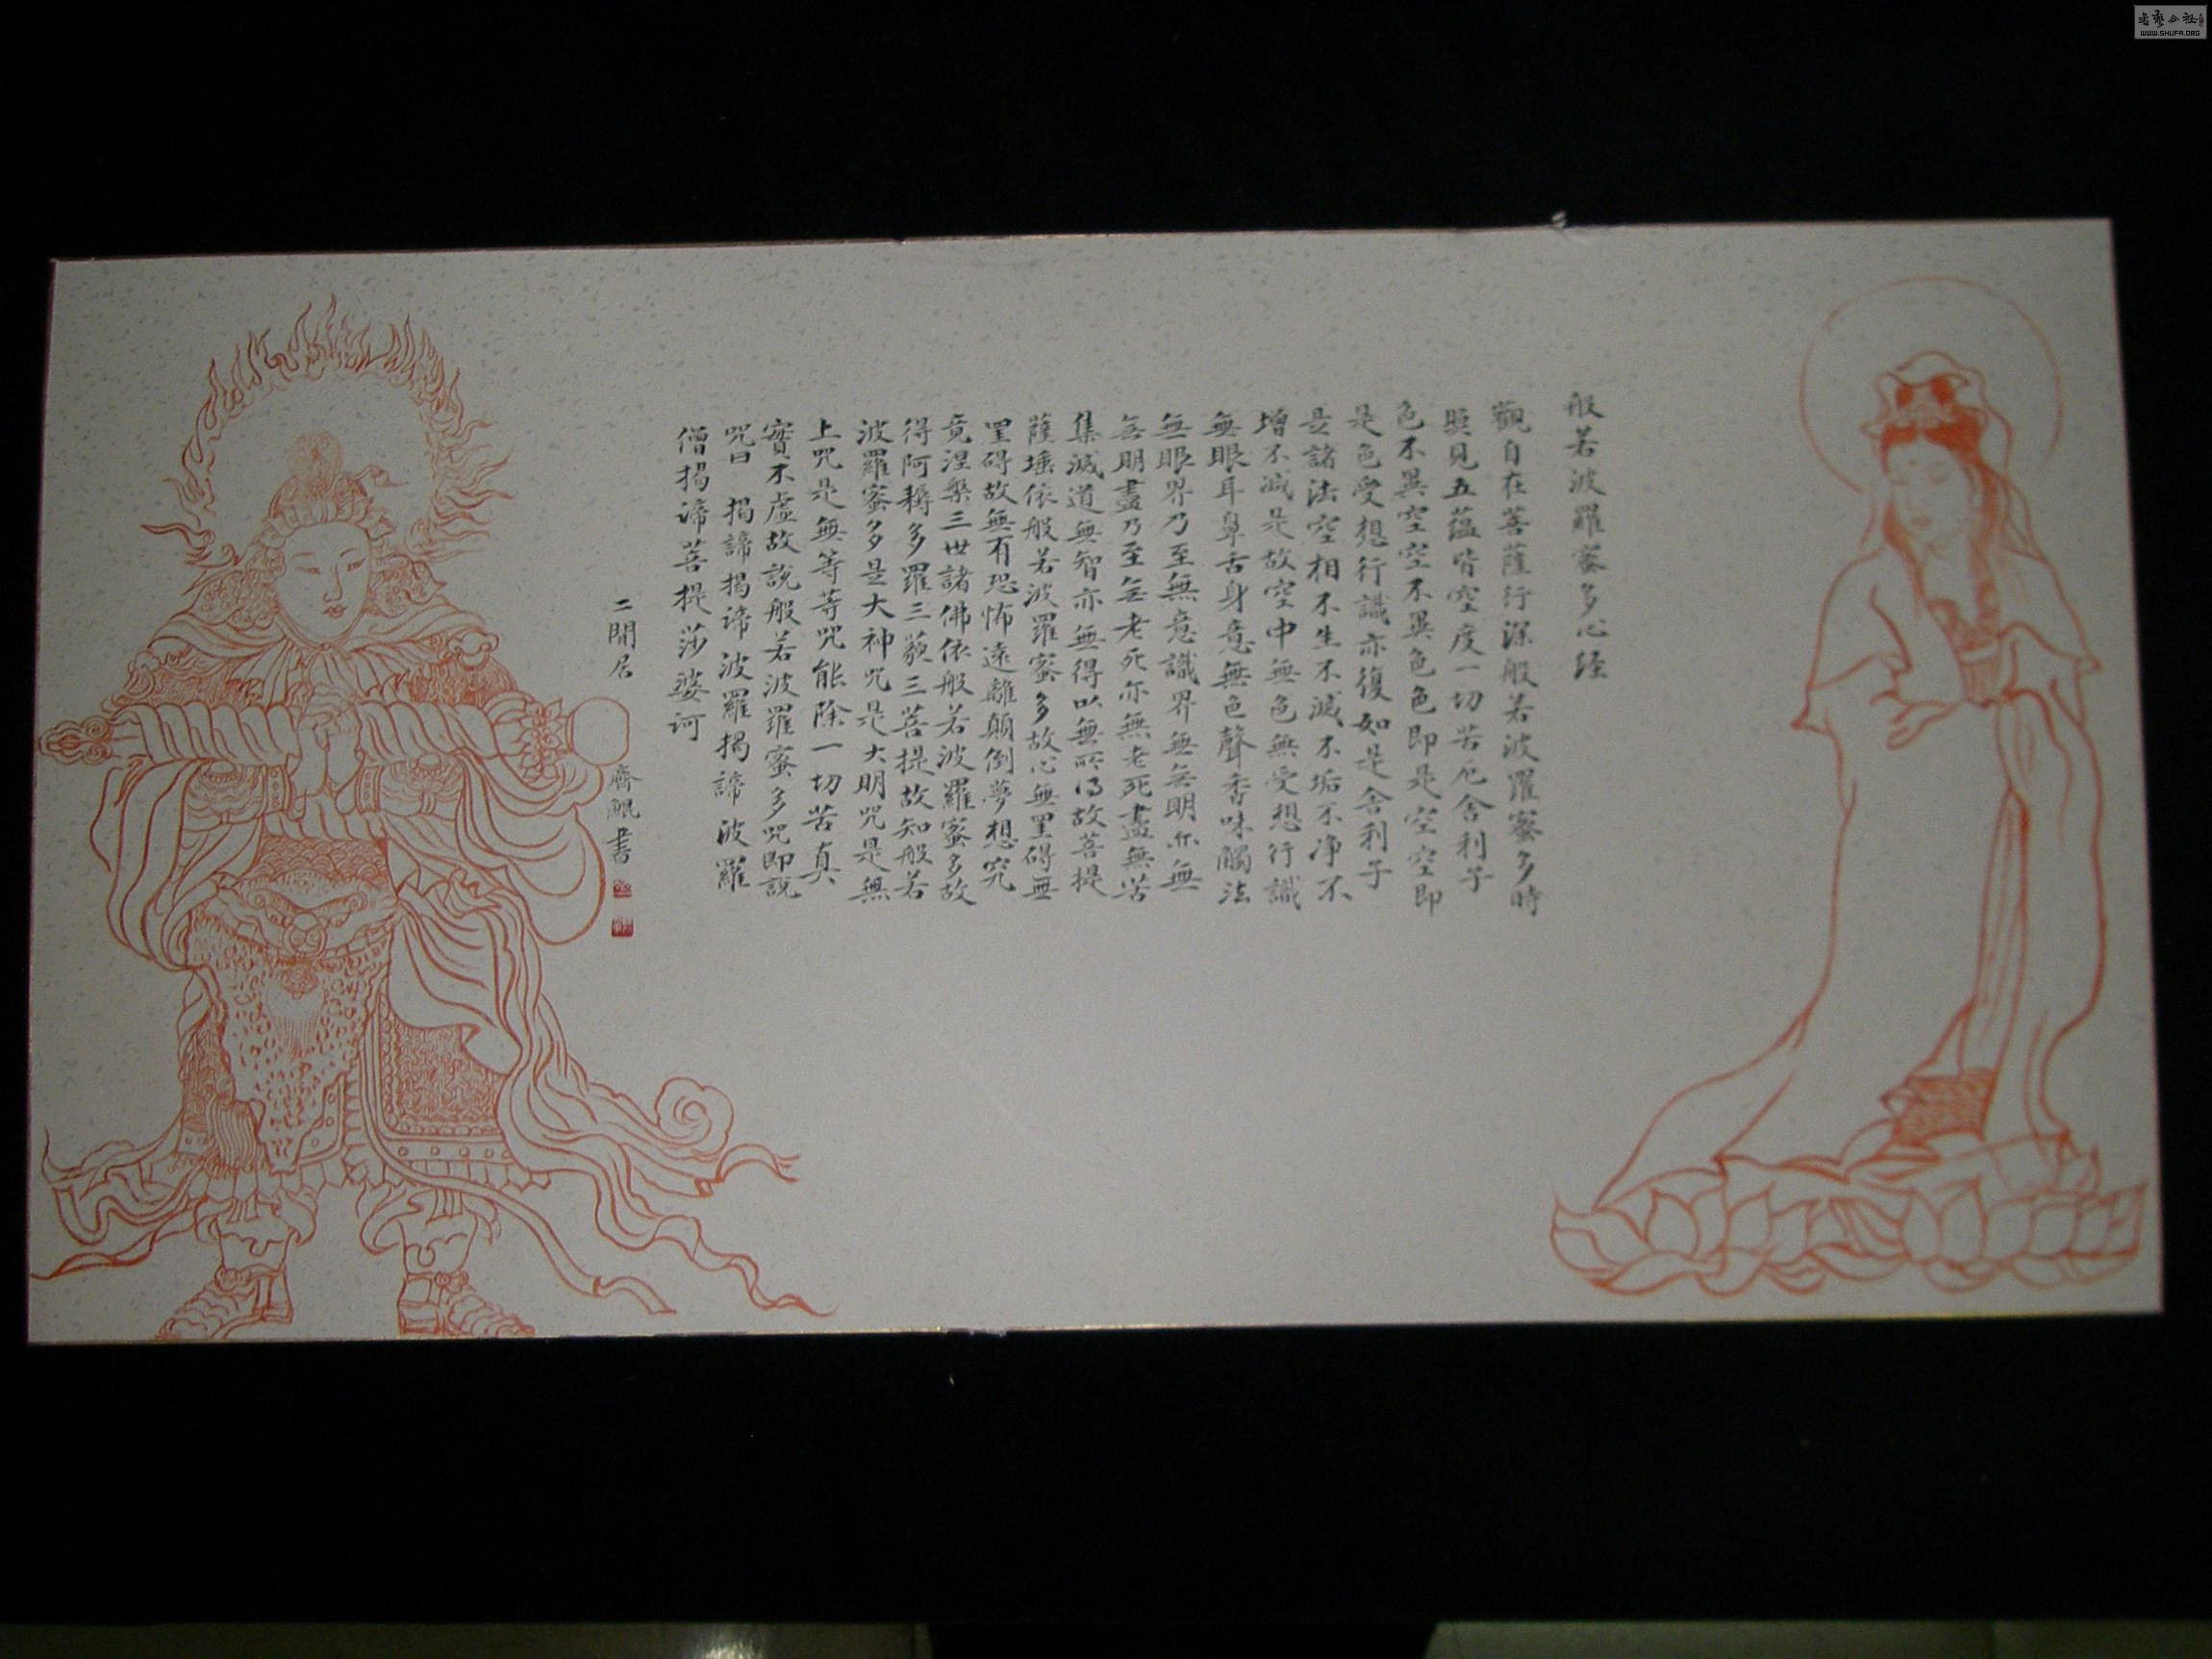 般若波羅蜜多心経
觀自在菩薩行深般若波羅蜜多時
照見五蘊皆空度一切苦厄舍利子
色不異空空不異色色即是空空即
是色受想行識亦復如是舍利子
是諸法空相不生不滅不垢不净不
增不減是故空中無色無受想行識
無眼耳鼻舌身意無色聲香味觸法
無眼界乃至無意識界無無明亦無
無明盡乃至無老死亦無老死盡無苦
集滅道無智亦無得以無所得故菩提
薩埵依般若波羅蜜多故心無罣碍無
罣碍故無有恐怖遠離顛倒夢想究
竟涅槃三世諸佛依般若波羅蜜多故
得阿耨多羅三藐三菩提故知般若
波羅蜜多是大神咒是大明咒是無
上咒是無等等咒能除一切苦真
實不虛故說般若波羅蜜多咒即說
咒曰 揭諦揭諦波羅揭諦波羅
僧揭諦菩提莎婆訶
二閒居 齋 書
WWW.SHUFA.ORG